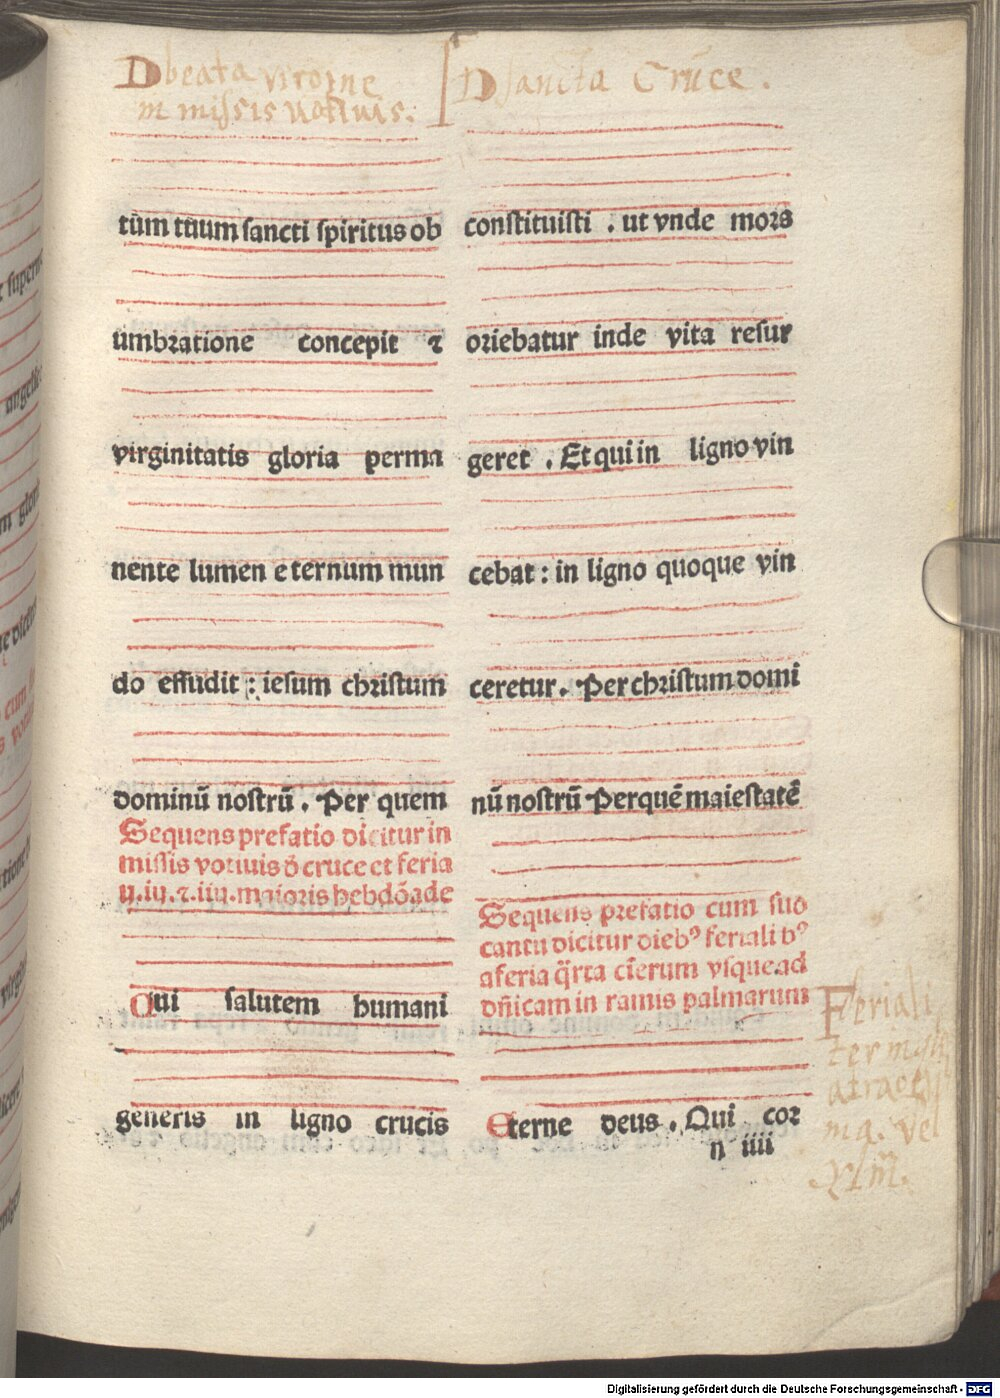 D beata virgine
in missis votiuis:
D sancta Cruce.
tūm tuum sancti spiritus ob
umbratione concepit ⁊
virginitatis gloria perma
nente lumen eternum mun
do effudit : iesum christum
dominū nostrū . Per quem
Sequens prefatio dicitur in
missis votiuis ō cruce et feria
ij.iij.⁊.iiij.maioris hebdōade
Qui salutem humani
generis in ligno crucis
constituisti . ut vnde mors
oriebatur inde vita resur
geret . Et qui in ligno vin
cebat : in ligno quoque vin
ceretur . Per christum domi
nū nostrū Per quē maiestatē
Sequens prefatio cum suo
cantu dicitur diebꝰ feriali bꝰ
a feria q̄rta cīerum vsque ad
dn̄icam in ramis palmarum
Eterne deus . Qui cor
n iiii
Feriali
ma. vel
Digitalisierung gefördert durch die Deutsche Forschungsgemeinschaft - DFG